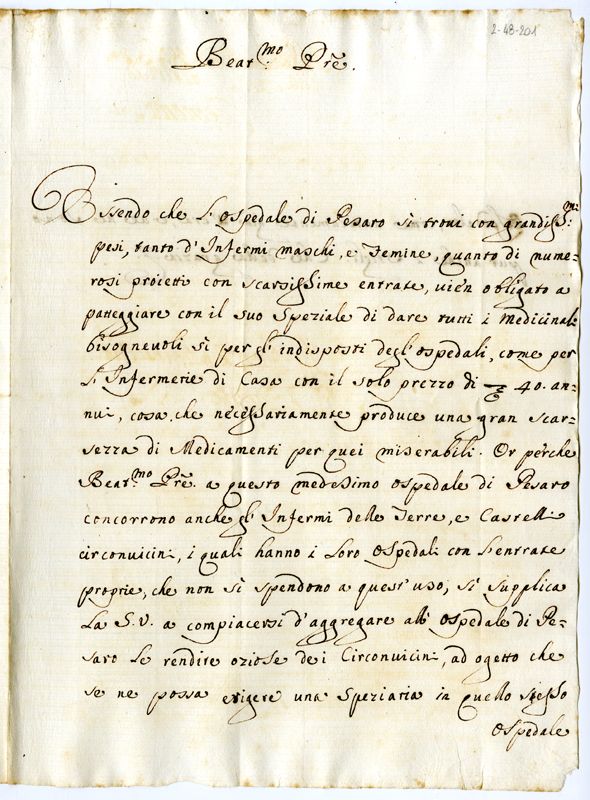 2-48-201
Beat.mo Prē.
Essendo che l'Ospedale di Pesaro si trovi con grandiss.mi
pesi, tanto d'Infermi maschi, e Femine, quanto di nume=
rosi proietti con scarsissime entrate, vien obligato a
patteggiare con il suo Speziale di dare tutti i Medicinali
bisognevoli sì per gl'indisposti degl'ospedali, come per
l'Infermerie di Casa con il solo prezzo di 40. an=
nui, cosa, che necessariamente produce una gran scar=
sezza di Medicamenti per quei miserabili. Or perche
Beat.mo Prē. a questo medesimo ospedale di Pesaro
concorrono anche gl'Infermi delle Terre, e Castelli
circonvicini, i quali hanno i loro ospedali con l'entrate
proprie, che non si spendono a quest'uso; si supplica
La S.V. a compiacersi d'aggregare all'ospedale di Pe=
saro le rendite oziose dei Circonvicini, ad ogetto che
se ne possa erigere una Speziaria in quello stesso
ospedale